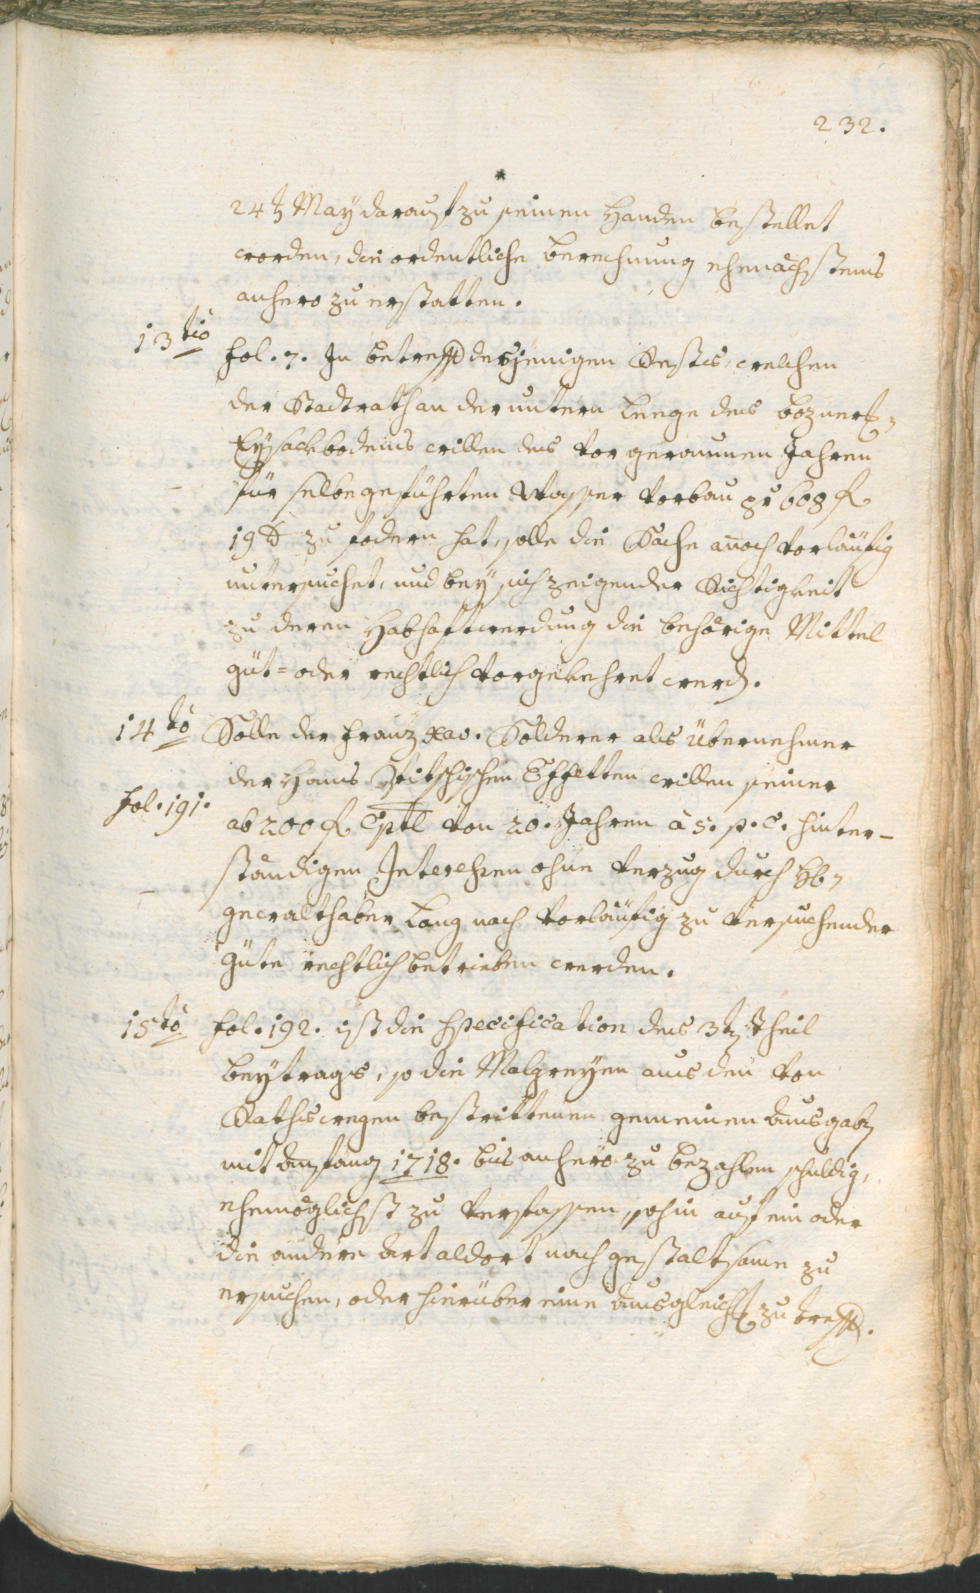 232.
24t May darauf zu seinen Handen bestellet
worden, die ordentliche berechnung ehenächstens
anhero zu erstatten.
13tio
fol. 7. In betreff desjenigen Restes, welchen
der Stadtrath an der untern Leege des bozner
Eysackbodens willen des vor geraumen Jahren
für selbe geführten Wasser Verbau pr 608 f
19 x zu fodern hat, solle die Sache annoch vorläufig
untersuchet, und bey sich zeigender Richtigkeit
zu deren Habhaftwerdung die behörige Mittel
güt- oder rechtlich vorgekehret werd.
14to Solle der Franz Xav. Solderer als Übernehmer
der Hans Pitschischen Effetten willen seiner
fol. 191.
ab 200 f Cptl von 20. Jahren à 5. p. C. hinter-
ständigen Interehsen ohne Verzug durch H.
gewalthaber Lang nach vorläufig zu versuchender
Güte rechtlich betrieben werden.
15to fol. 192. ist die Specification des 3t Theil
beytrags, so die Malgreyen aus den von
Rathswegen bestrittenen gemeinen ausgab
mit anfang 1718. bis anhero zu bezahlen schuldig,
ehemöglichst zu verfassen, sohin auf ein oder
die andere art aldort nach gestaltsame zu
ersuchen, oder hierüber eine ausgleich zu treff.